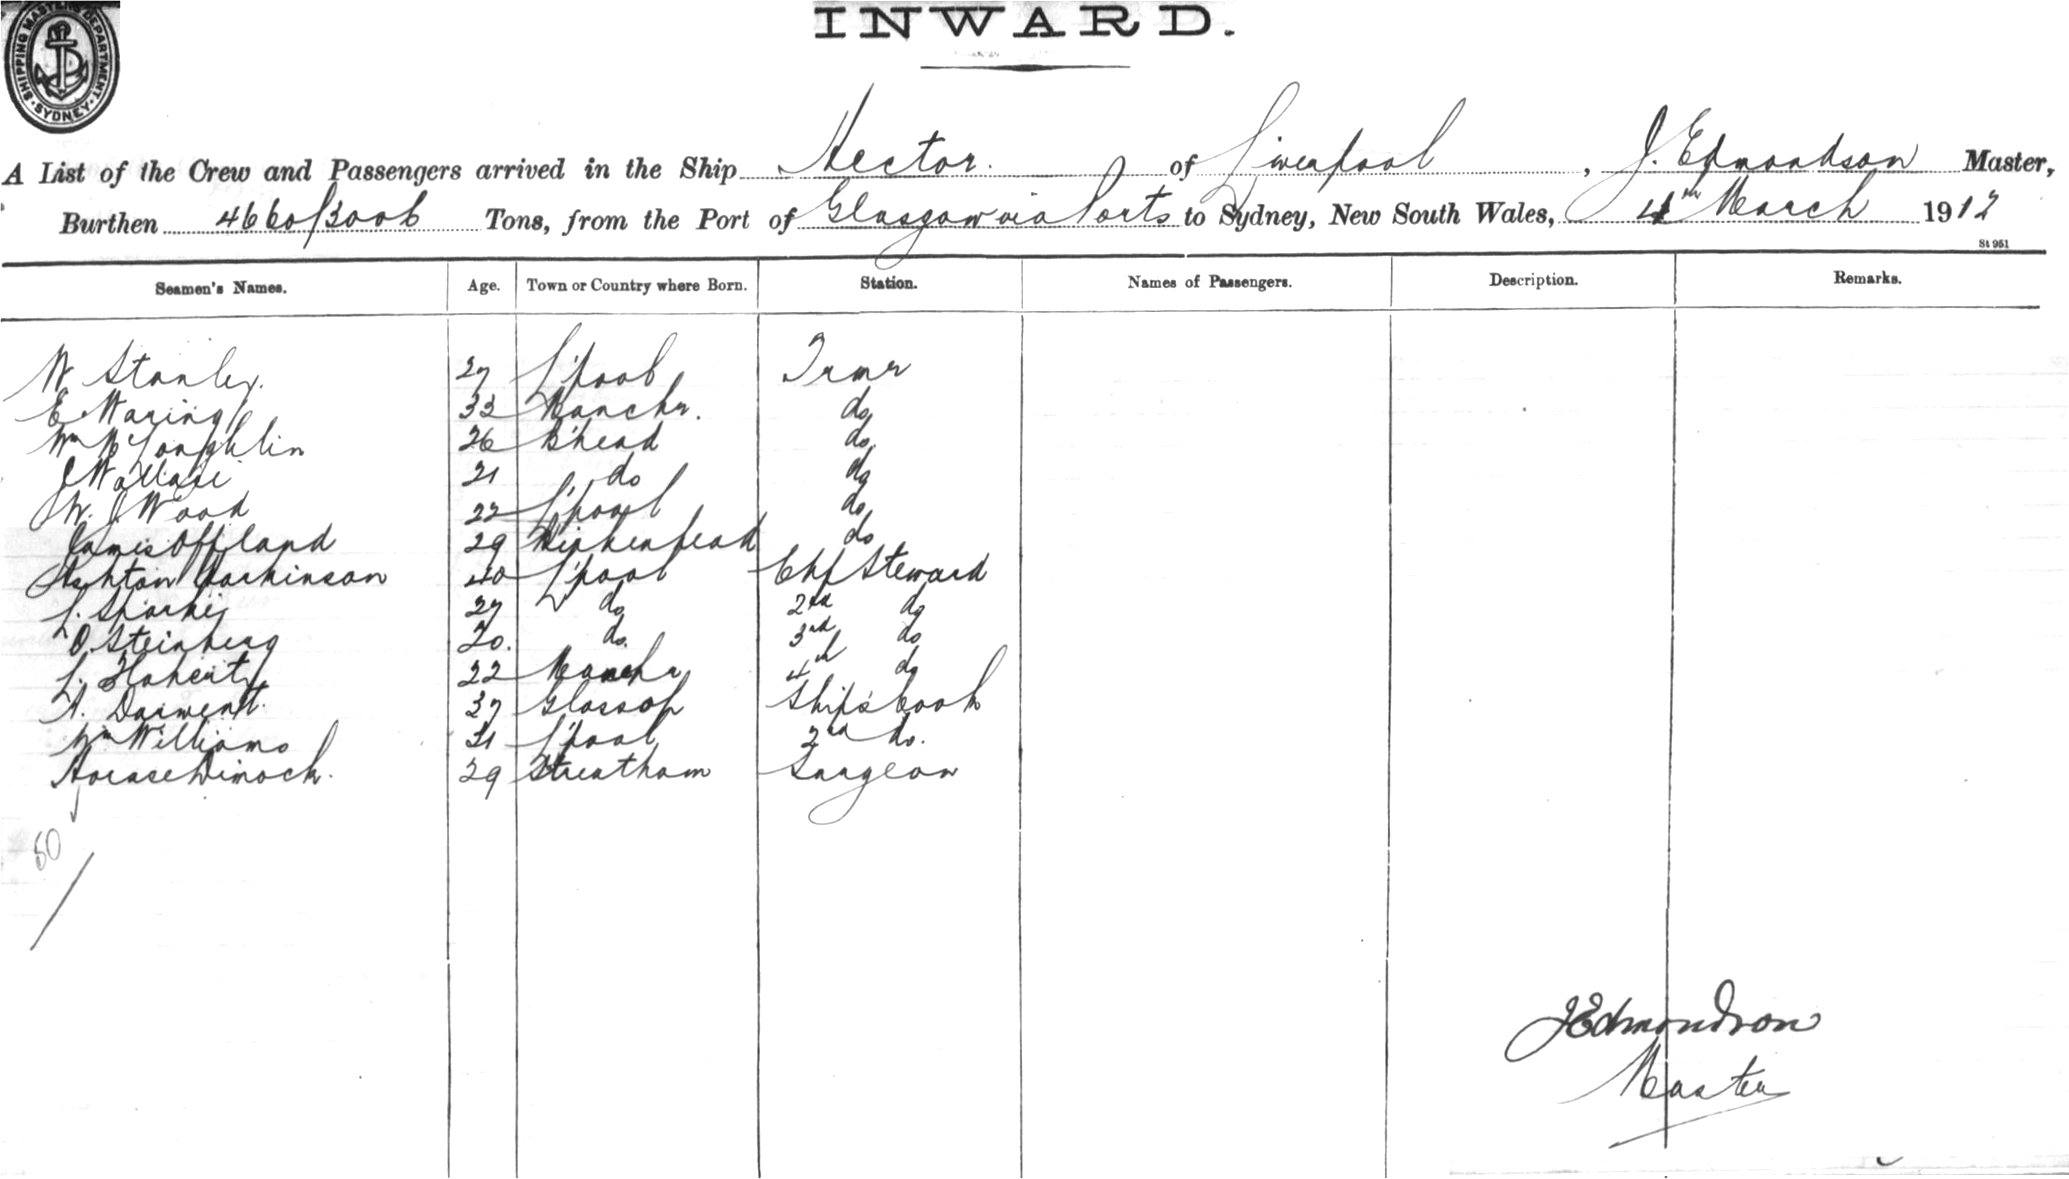 SHIPPING MASTERS DEPARTMENT. SYDNEY
INWARD.
A List of the Crew and Passengers arrived in the Ship Hector. of Liverpool, J. Edmondson Master,
Burthen 4660/3006 Tons, from the Port of Glasgow via Ports to Sydney, New South Wales, 4th March 1912
St 951
Seamen's Names. Age. Town or Country where Born. Station. Names of Passengers. Description. Remarks.
W Stanley. 27 L'pool Trmr
E Waring 33 Manchr. do
Wm McLoughlin 26 B'head do.
J Wallace 21 do do
W. J. Wood 22 L'pool do
James Offland 29 Birkenhead do
Ashton Parkinson 40 L'pool Chf Steward
L. Sparkes 27 do 2nd do
O. Steinberg 20. do. 3rd do
L. Flaherty 22 Manchr 4th do
A. Darwent. 37 Glossop Ship's Cook
Wm Williams 31 L'pool 2nd do.
Horace Dimock. 29 Streatham Surgeon
80
J Edmondson
Master